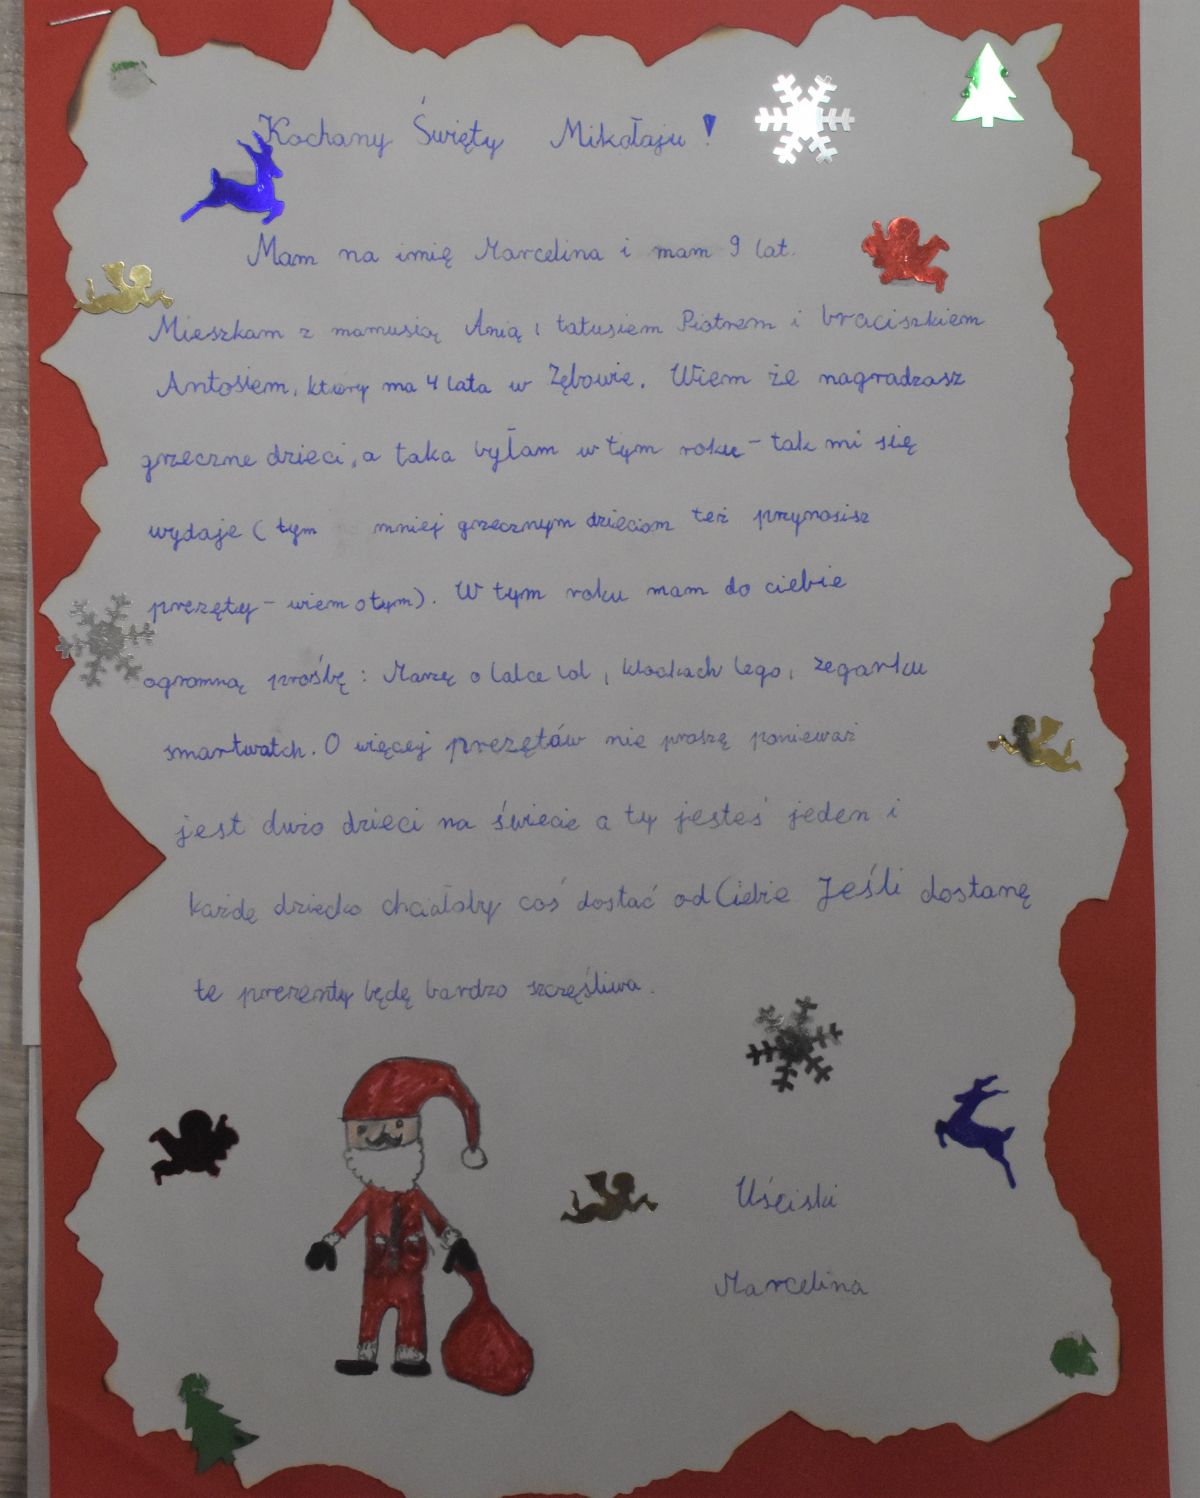 Kochany Święty Mikołaju!
Mam na imię Marcelina i mam 9 lat.
Mieszkam z mamusią Anią i tatusiem Piotrem i braciszkiem
Antosiem, który ma 4 lata w Zębowie. Wiem że nagradzasz
grzeczne dzieci, a taka byłam w tym roku - tak mi się
wydaje ( tym mniej grzecznym dzieciom też przynosisz
prezęty - wiem o tym). W tym roku mam do ciebie
ogromną prośbę: Marzę o lalce lol, klockach lego, zegarku
smartwatch. O więcej prezętów nie proszę ponieważ
jest dużo dzieci na świecie a ty jesteś jeden i
każde dziecko chciałoby coś dostać od Ciebie Jeśli dostanę
te prezenty będę bardzo szczęśliwa.
Uściski
Marcelina